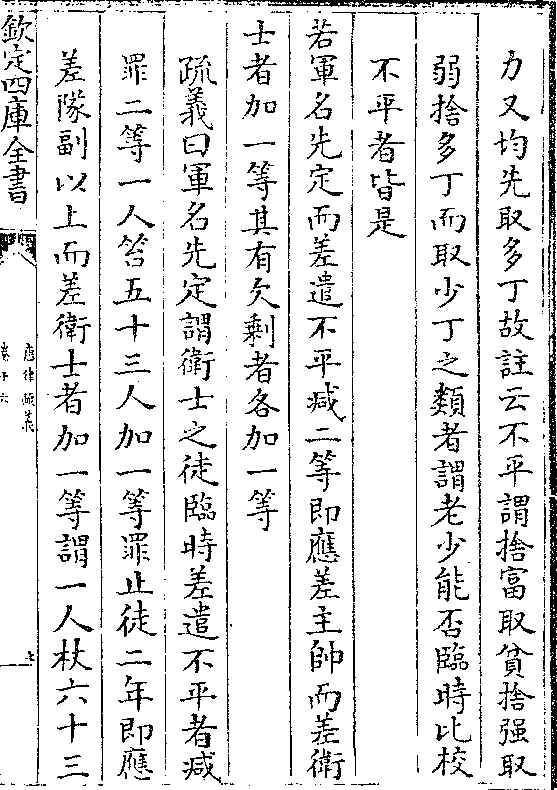 力又均先取多丁故註云不平謂捨富取貧捨强取
弱捨多丁而取少丁之類者謂老少能否臨時比校
不平者皆是
若軍名先定而差遣不平減二等即應差主帥而差衛
士者加一等其有欠剩者各加一等
疏義曰軍名先定謂衛士之徒臨時差遣不平者減
罪二等一人笞五十三人加一等罪止徒二年即應
差隊副以上而差衛士者加一等謂一人杖六十三
欽定四庫全書
唐律疏義
卷十六